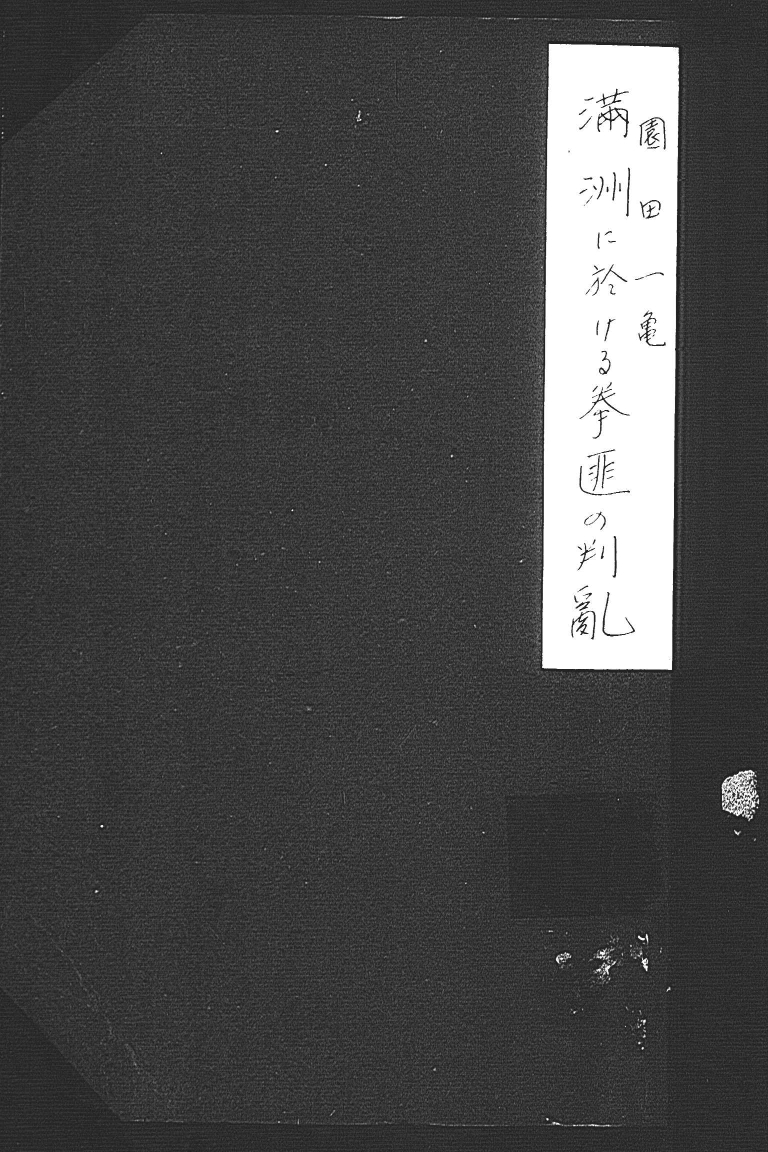 園田一亀
満洲に於ける拳匪の判亂